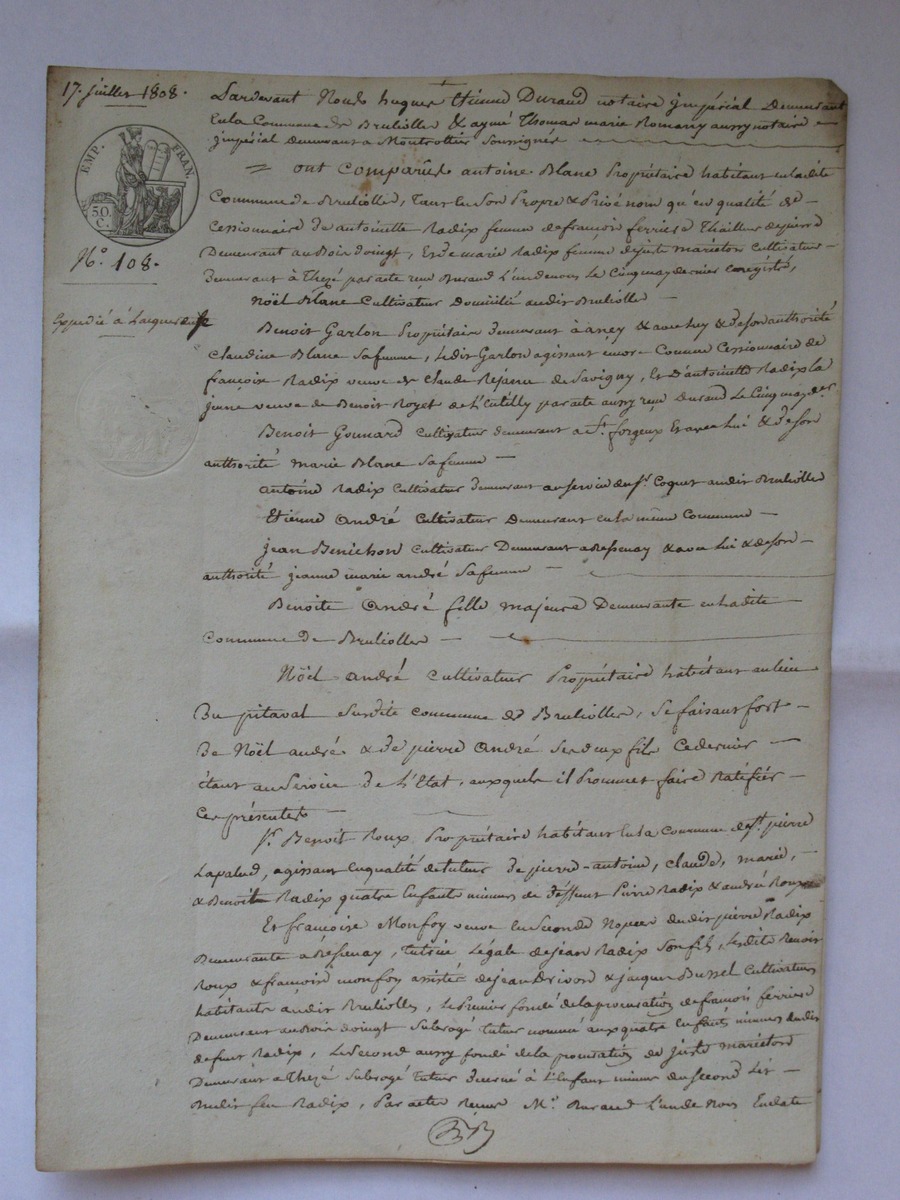 17. juillet 1808.
EMP. FRAN.
50. C.
N.° 108.
Expédié à Jacques
Pardevant Nous hugues Etienne Durand notaire jmpérial Demeurant
En la Commune de Brulioller & aymé Thomas marie Romany aussy notaire
jmpérial demeurant a Montrottier Soussignés
= ont comparûs antoine Blanc Propriétaire habitant en ladite
Commune de Brulioller, Tant En Son Propre & Privé nom qu'en qualité de
Cessionnaire de antoinette Radix femme de françois ferriere Thailleur de pierre
Demeurant au Bois doingt, Et de marie Radix femme de juste mariéton Cultivateur
Demeurant à Thezé par acte reçu Durand L'un de nous Le Cinq may dernier enregistré,
Noël Blanc Cultivateur Domicilié audit Brulioller —
Benoit Garlon Propriétaire demeurant à ancy & avec luy & de son authorité
Claudine Blanc Sa femme, Ledit Garlon agissant encore Comme Cessionnaire de
françoise Radix veuve de Claude Rejanin de Savigny, Et D'antoinette Radix la
jeune veuve de Benoit Royet de L'Entilly par acte aussy reçu Durand Le Cinq may der
Benoit Gonnard Cultivateur demeurant a St. forgeux Et avec Lui & de Son
authorité marie Blanc Sa femme —
antoine Radix Cultivateur demeurant au service du Sr. Coquet audit Brulioller
Etienne andré Cultivateur Demeurant en la même Commune —
jean Benichon Cultivateur Demeurant a Bessenay & avec Lui & de Son
authorité jeanne marie andré Sa femme —
Benoite andré fille majeure Demeurante en ladite
Commune de Brulioller —
Noël andré Cultivateur Propriétaire habitant au lieu
Du pitaval Surdite Commune de Brulioller, Se faisant fort
De Noël andré & de pierre andré Ses deux fils Ce dernier
étant au Service de L'Etat, auxquels il Promet faire Ratiffier
Ces présentes
Sr. Benoit Roux Propriétaire habitant En la Commune de St. pierre
Lapalud, agissant En qualité de tuteur de pierre-antoine, Claude, marie,
& Benoite Radix quatre Enfants mineurs de déffunt Pierre Radix & andrée Roux
Et françoise Monfoy veuve En Seconde Noces dudit pierre Radix
Demeurante a Bessenay, tutrice Légale de jean Radix Son fils, Lesdits Benoit
Roux & françoise monfoy assistés de jean Drivon & jacques Bussel Cultivateurs
habitants audit Brulioller, Le Premier fondé de la procuration de françois ferriere
Demeurant au Bois doingt Subrogé tuteur nommé aux quatre Enfants mineurs dudit
defunt Radix, Le Second aussy fondé de la procuration de juste mariéton
Demeurant a Thezé Subrogé tuteur décerné à L'Enfant mineur du second Lit
Dudit feu Radix, Par actes Reçus Me. Durand L'un de Nous En date